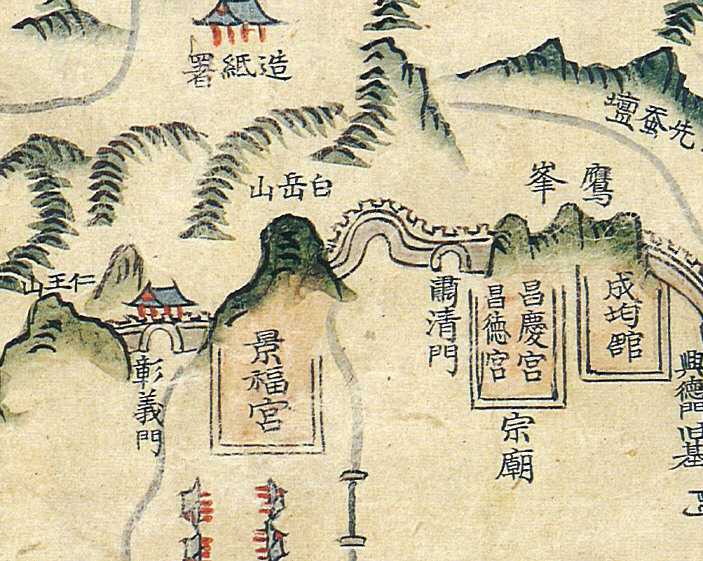 造紙署
先蚕壇
白岳山
鷹峯
仁王山
肅清門
昌慶宮
昌徳宮
成均館
景福宮
彰義門
宗廟
興德門旧基